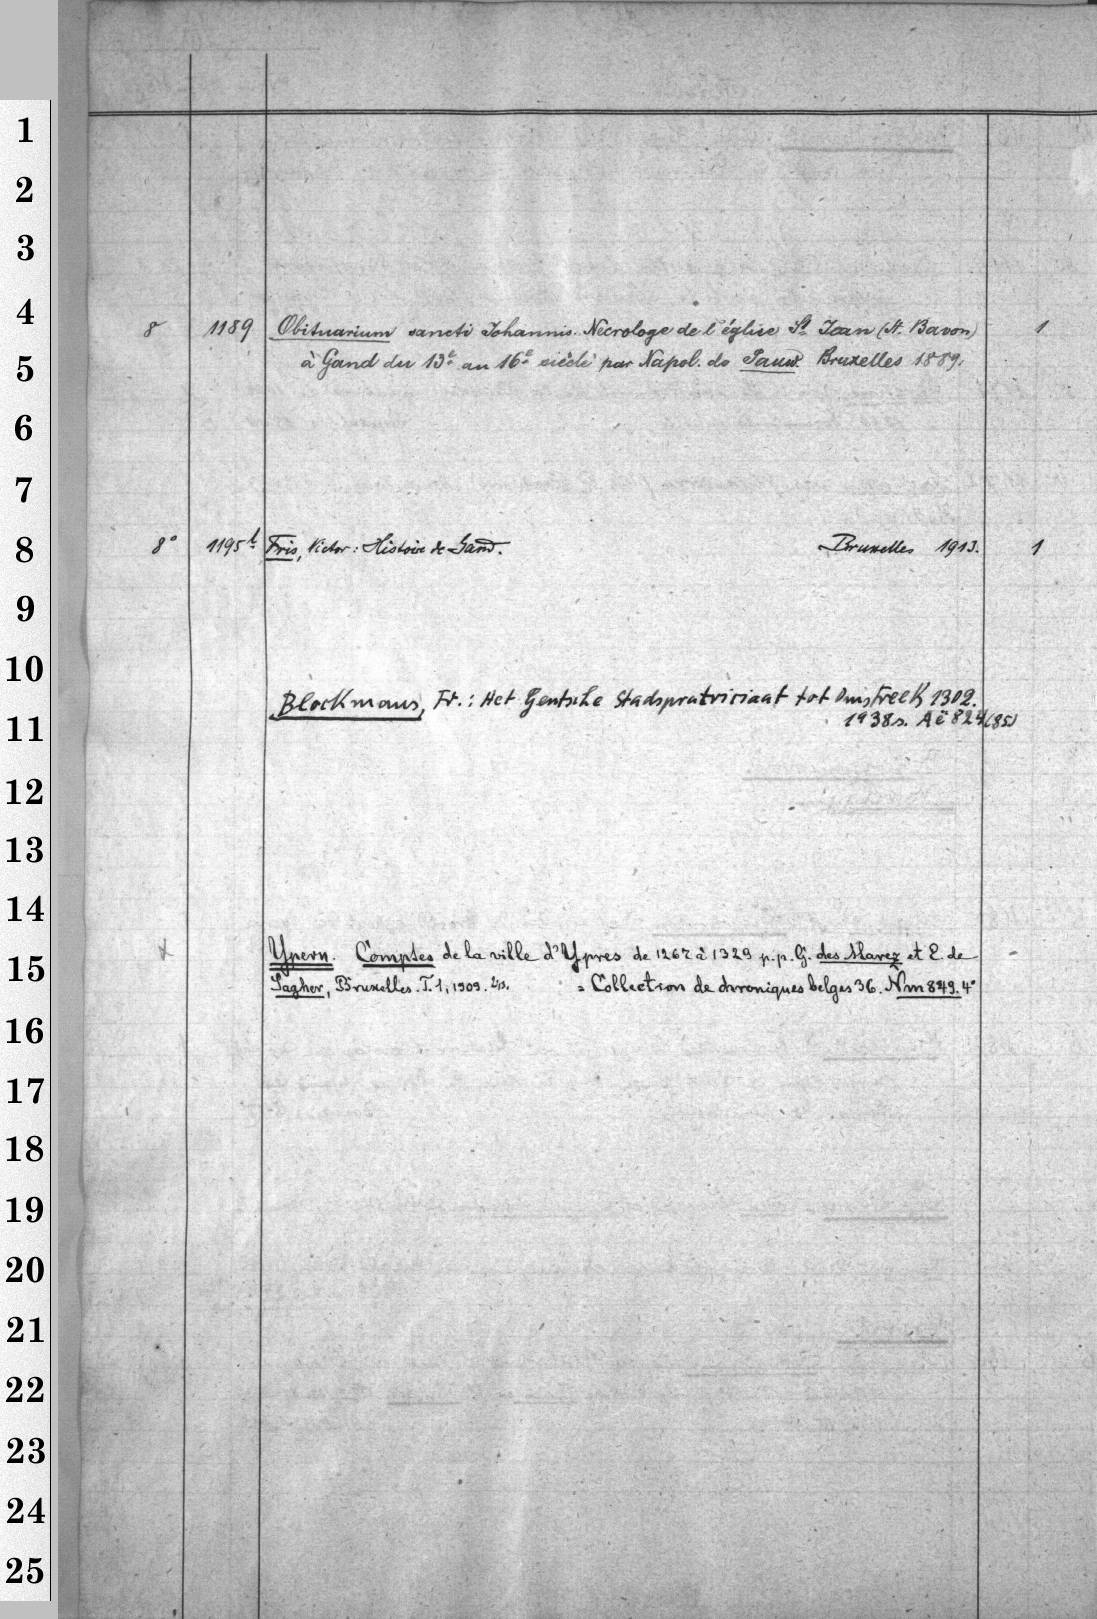 1
2
3
4
8 1189 Obituarium sancti Johannis. Nécrologe de l'église St. Jean (St. Bavon) 1
5
à Gand du 13e au 16e siècle par Napol. de Pauw. Bruxelles 1889.
6
7
8
8° 1195b Fris, Victor: Histoire de Gand. Bruxelles 1913. 1
9
10
11
Blockmans, Fr.: Het Gentsche Stadspatriciaat tot Omstreek 1302.
1938s. Aë 824 (85)
12
13
14
15
Ypern. Comptes de la ville d'Ypres de 1267 à 1329 p.p. G. des Marez et E. de
Sagher, Bruxelles. T. 1, 1909. = Collection de chroniques belges 36. Nm 849. 4°
16
17
18
19
20
21
22
23
24
25